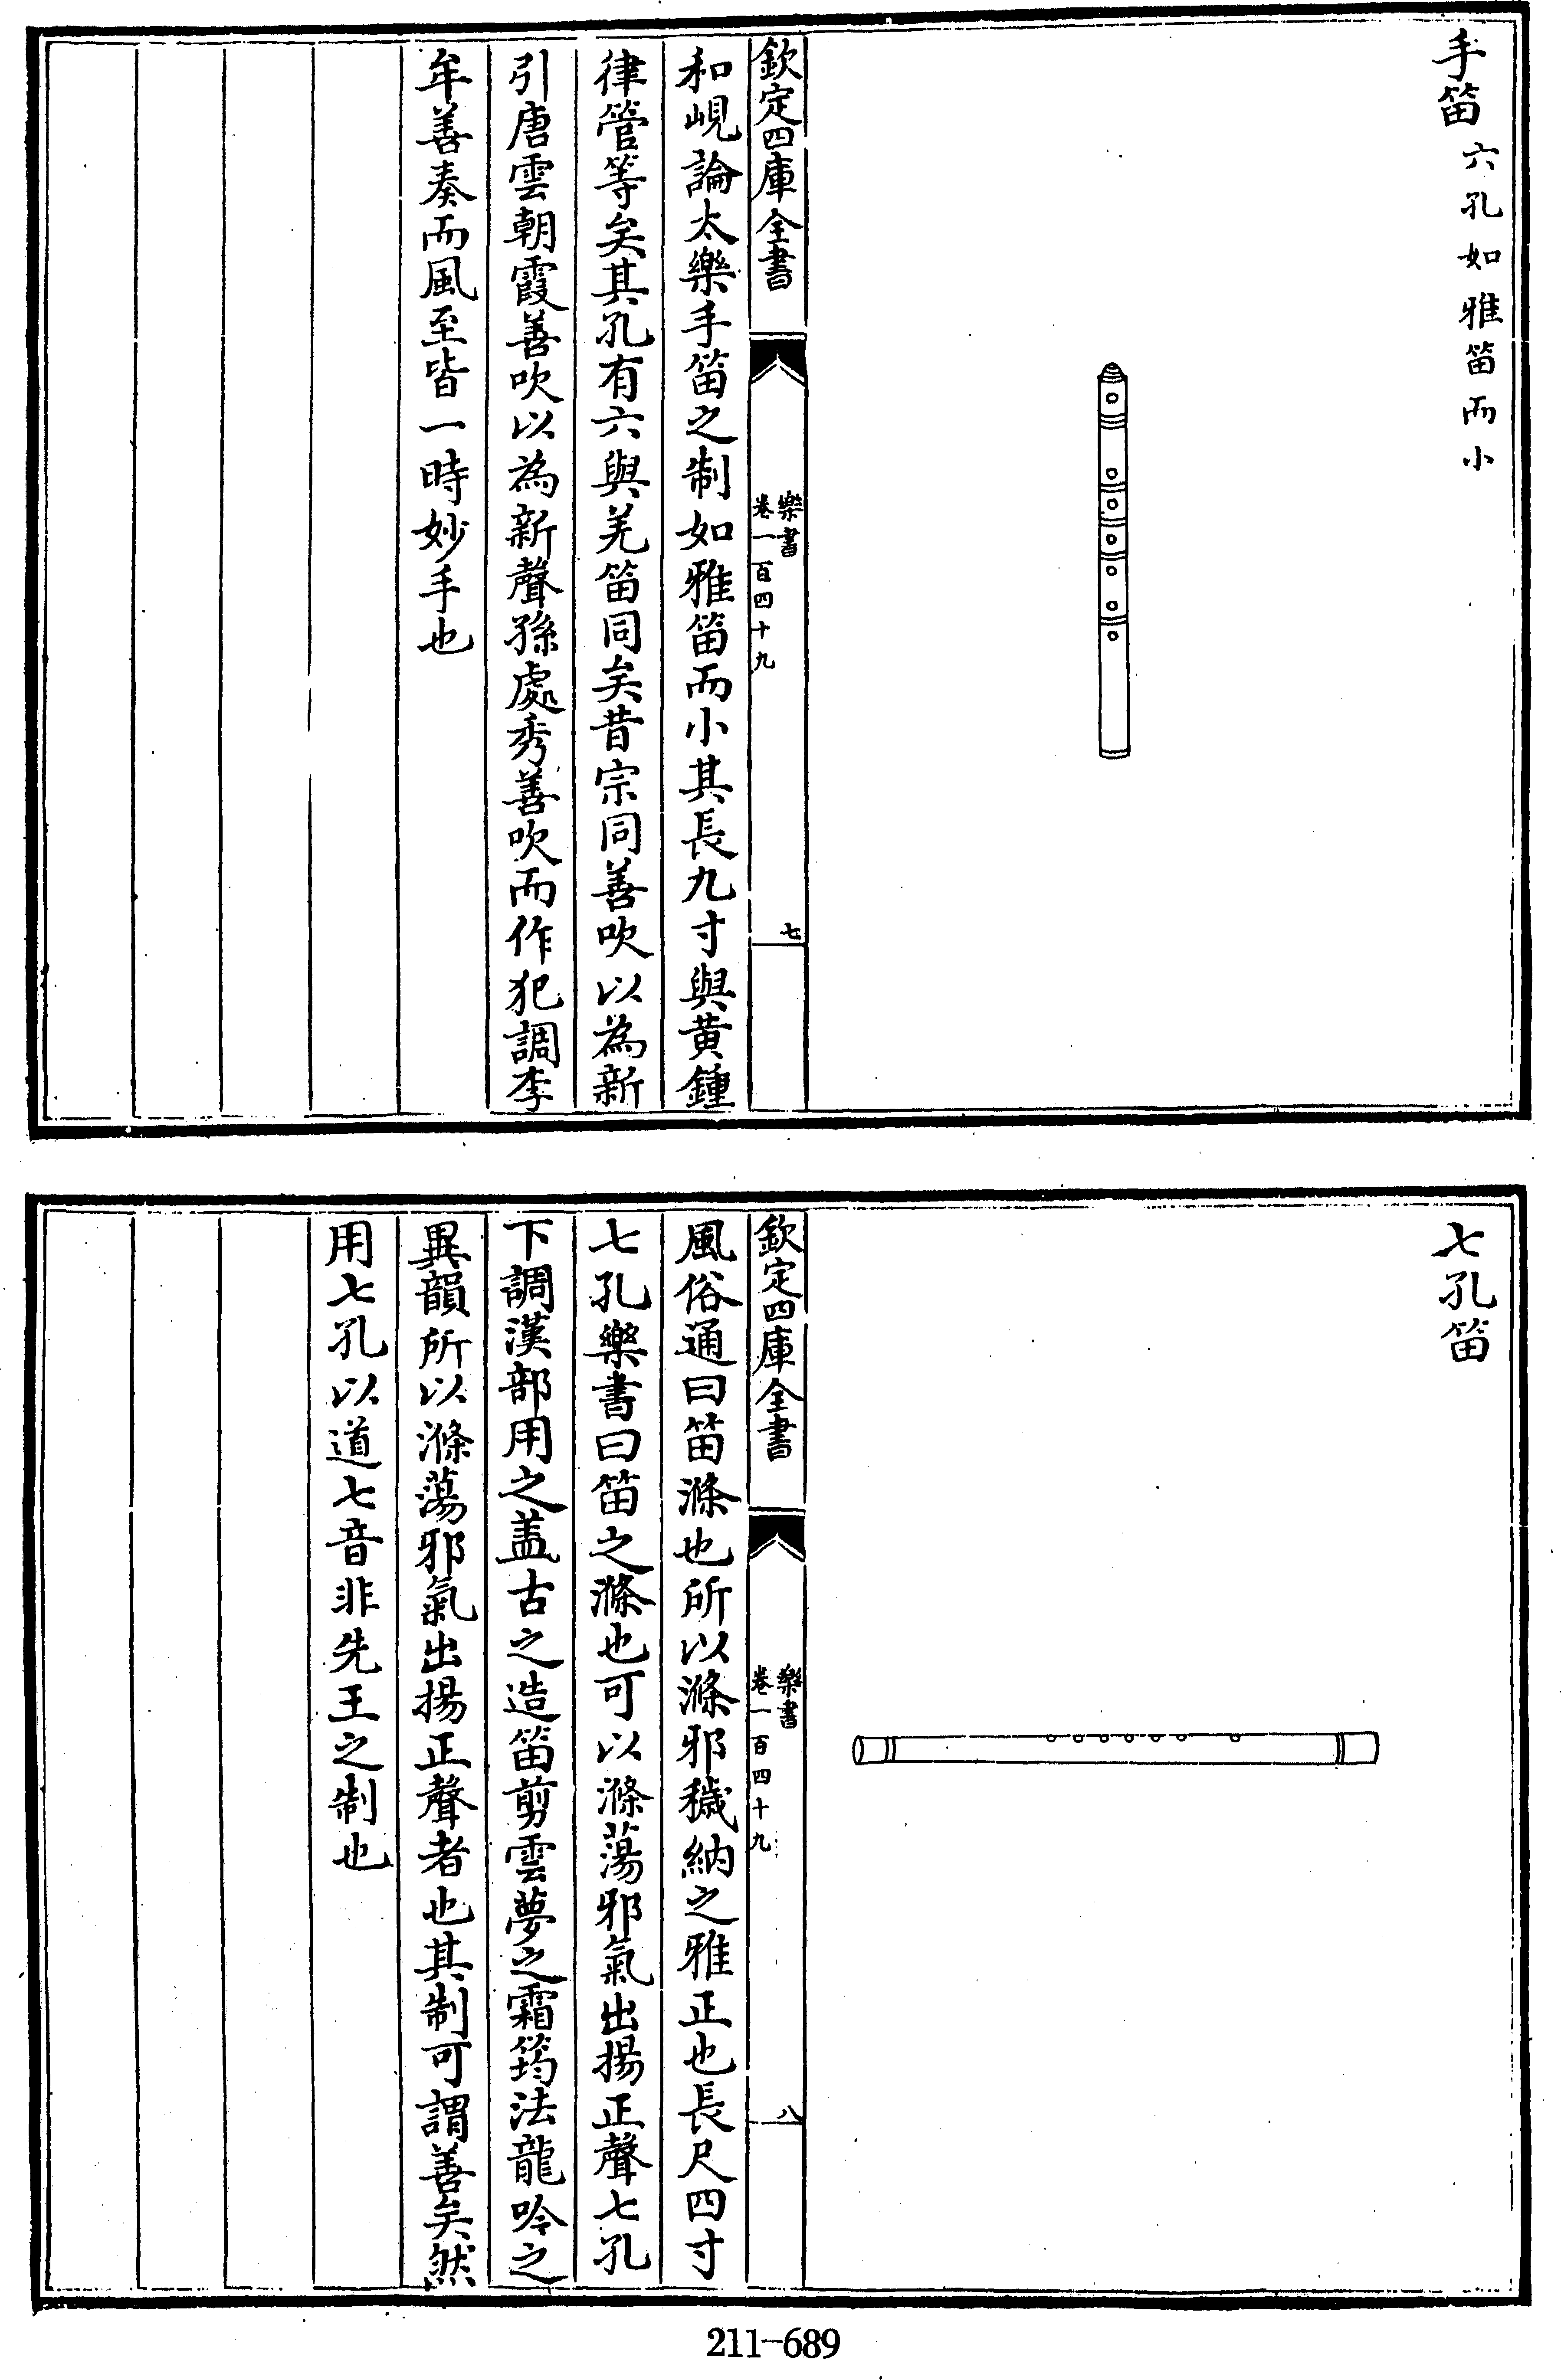 手笛六孔如雅笛而小
欽定四庫全書
樂書
卷一百四十九
七
和峴論太樂手笛之制如雅笛而小其長九寸與黄鍾
律管等矣其孔有六與羌笛同矣昔宗同善吹以為新
引唐雲朝霞善吹以為新聲孫處秀善吹而作犯調李
牟善奏而風至皆一時妙手也
七孔笛
欽定四庫全書
樂書
卷一百四十九
八
風俗通曰笛滌也所以滌邪穢納之雅正也長尺四寸
七孔樂書曰笛之滌也可以滌蕩邪氣出揚正聲七孔
下調漢部用之盖古之造笛剪雲夢之霜筠法龍吟之
異韻所以滌蕩邪氣出揚正聲者也其制可謂善矣然
用七孔以道七音非先王之制也
211-689